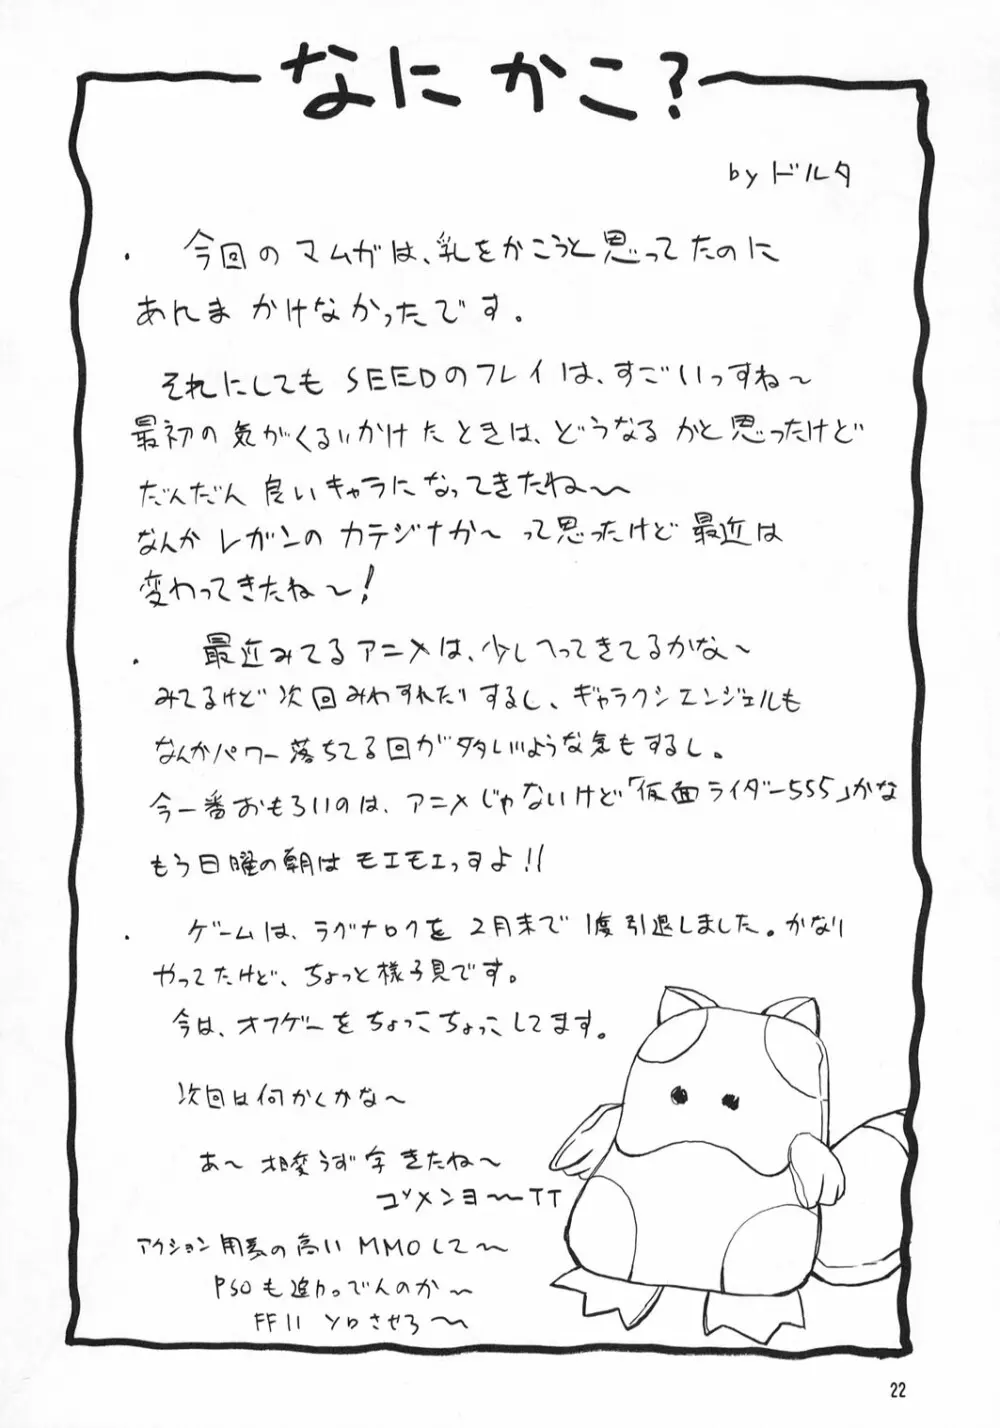 なに かこ?
by ドルタ
・ 今回の マムガは、乳をかこうと思ってたのに
あんま かけなかったです。
それにしても SEEDのフレイは、すごいっすね～
最初の 気がくるいかけたときは、どうなる かと思ったけど
だんだん 良いキャラになってきたね～
なんか レガンの カテジナか～ って思ったけど 最近は
変わってきたね～!
・ 最近みてるアニメは、少しへってきてるかな～
みてるけど 次回みわすれたりするし、ギャラクシエンジェルも
なんかパワー落ちてる回が多いような気もするし。
今一番おもろいのは、アニメじゃないけど「仮面ライダー555」かな
もう日曜の朝は モエモエっすよ!!
・ ゲームは、ラグナロクを 2月末で 1度引退しました。かなり
やってたけど、ちょっと様子見です。
今は、オフゲーを ちょっこちょっこしてます。
次回は何かくかな～
あ～ 相変らず字 きたね～
ゴメンヨ～TT
アクション 用素の 高い MMOして～
PSOも んのか～
FF11 ソロさせろ～
22